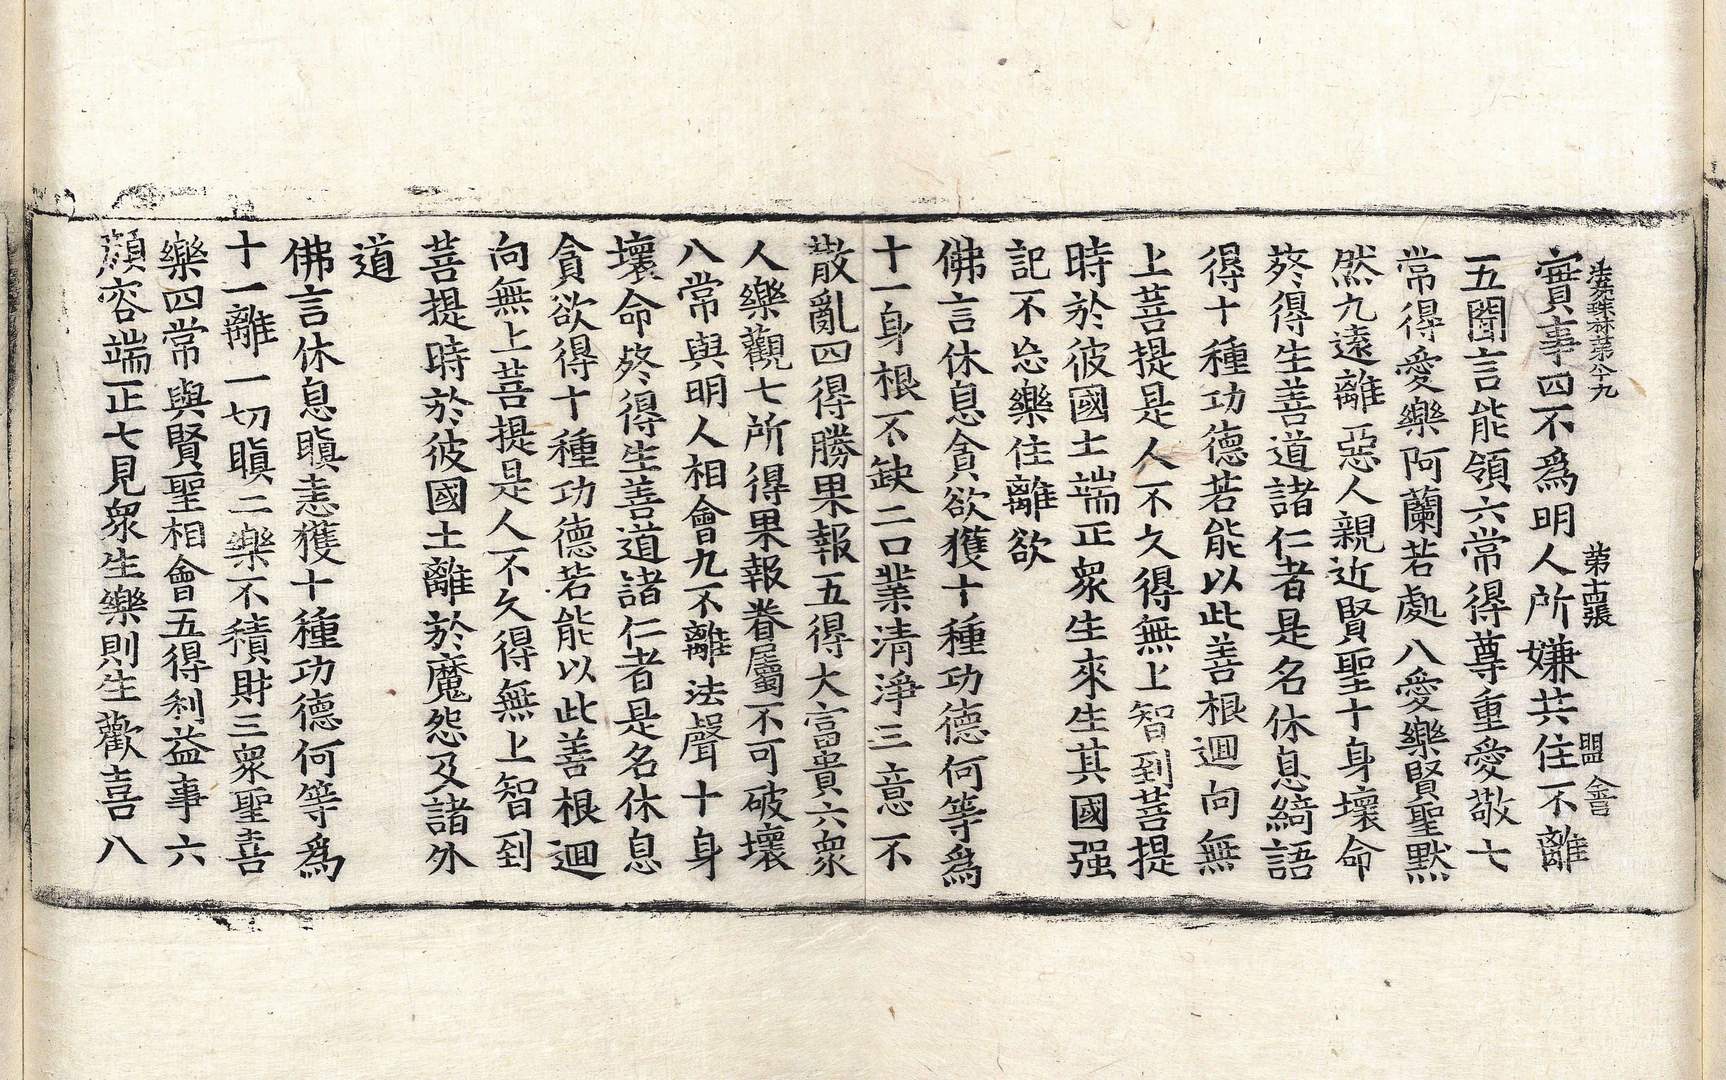 法苑珠林第八十九 第十四張 盟 舍言
實事四不爲明人所嫌共住不離
五聞言能領六常得尊重愛敬七
常得愛樂阿蘭若處八愛樂賢聖默
然九遠離惡人親近賢聖十身壞命
終得生善道諸仁者是名休息綺語
得十種功德若能以此善根迴向無
上菩提是人不久得無上智到菩提
時於彼國土端正衆生來生其國强
記不忘樂住離欲
佛言休息貪欲獲十種功德何等爲
十一身根不缺二口業清淨三意不
散亂四得勝果報五得大富貴六衆
人樂觀七所得果報眷屬不可破壞
八常與明人相會九不離法聲十身
壞命終得生善道諸仁者是名休息
貪欲得十種功德若能以此善根迴
向無上菩提是人不久得無上智到
菩提時於彼國土離於魔怨及諸外
道
佛言休息瞋恚獲十種功德何等爲
十一離一切瞋二樂不積財三衆聖喜
樂四常與賢聖相會五得利益事六
顏容端正七見衆生樂則生歡喜八